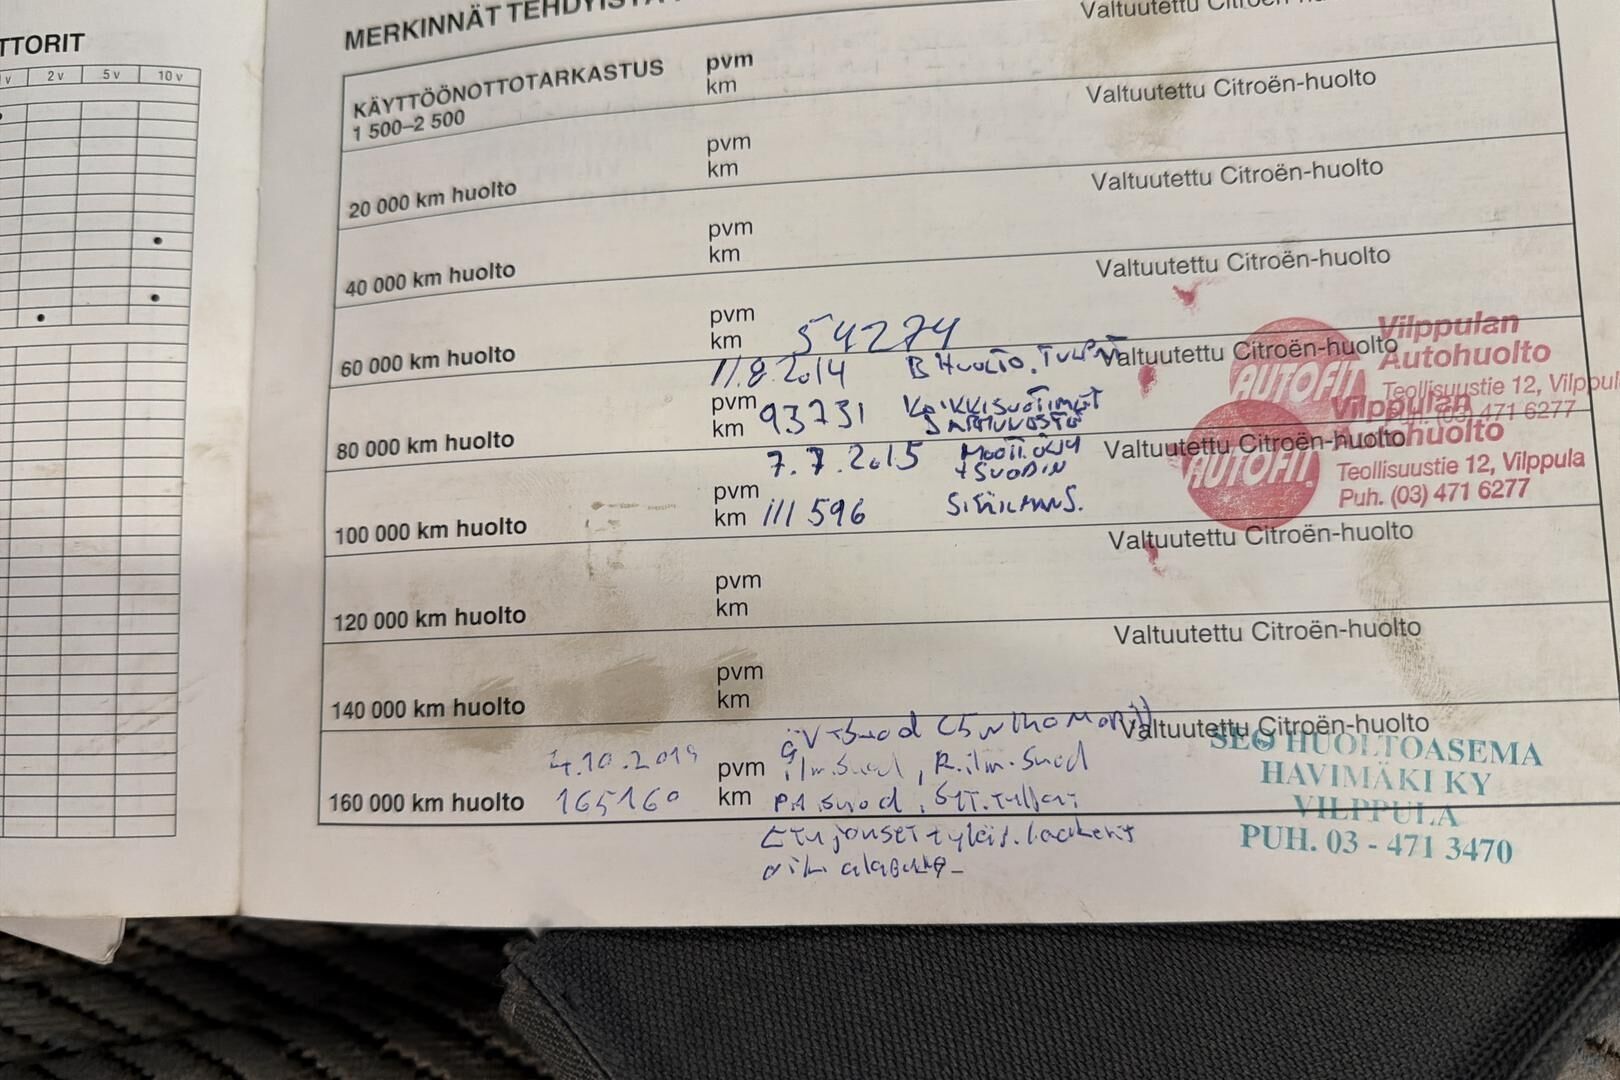 TTORIT
v 2 v 5 v 10 v
MERKINNÄT TEHDYISTÄ
Valtuutettu Citroën-huolto
KÄYTTÖÖNOTTOTARKASTUS pvm
1 500–2 500 km
Valtuutettu Citroën-huolto
pvm
20 000 km huolto km
Valtuutettu Citroën-huolto
pvm
40 000 km huolto km
Valtuutettu Citroën-huolto
pvm
60 000 km huolto km 54274
Valtuutettu Citroën-huolto
11.8.2014 B HUOLTO.
pvm KAIKKI SUOTIMET
80 000 km huolto km 93731
Valtuutettu Citroën-huolto
Vilppulan
Autohuolto
AUTOFIT
Teollisuustie 12, Vilppula
(03) 471 6277
7.7.2015
+ SUODIN
pvm
100 000 km huolto km 111 596 SISÄILMANS.
Valtuutettu Citroën-huolto
Vilppulan
Autohuolto
AUTOFIT
Teollisuustie 12, Vilppula
Puh. (03) 471 6277
pvm
120 000 km huolto km
Valtuutettu Citroën-huolto
pvm
140 000 km huolto km
Valtuutettu Citroën-huolto
4.10.2019 pvm ilm.suod, R.ilm.suod
160 000 km huolto 165160 km PA suod,
SEO HUOLTOASEMA
HAVIMÄKI KY
VILPPULA
PUH. 03 - 471 3470